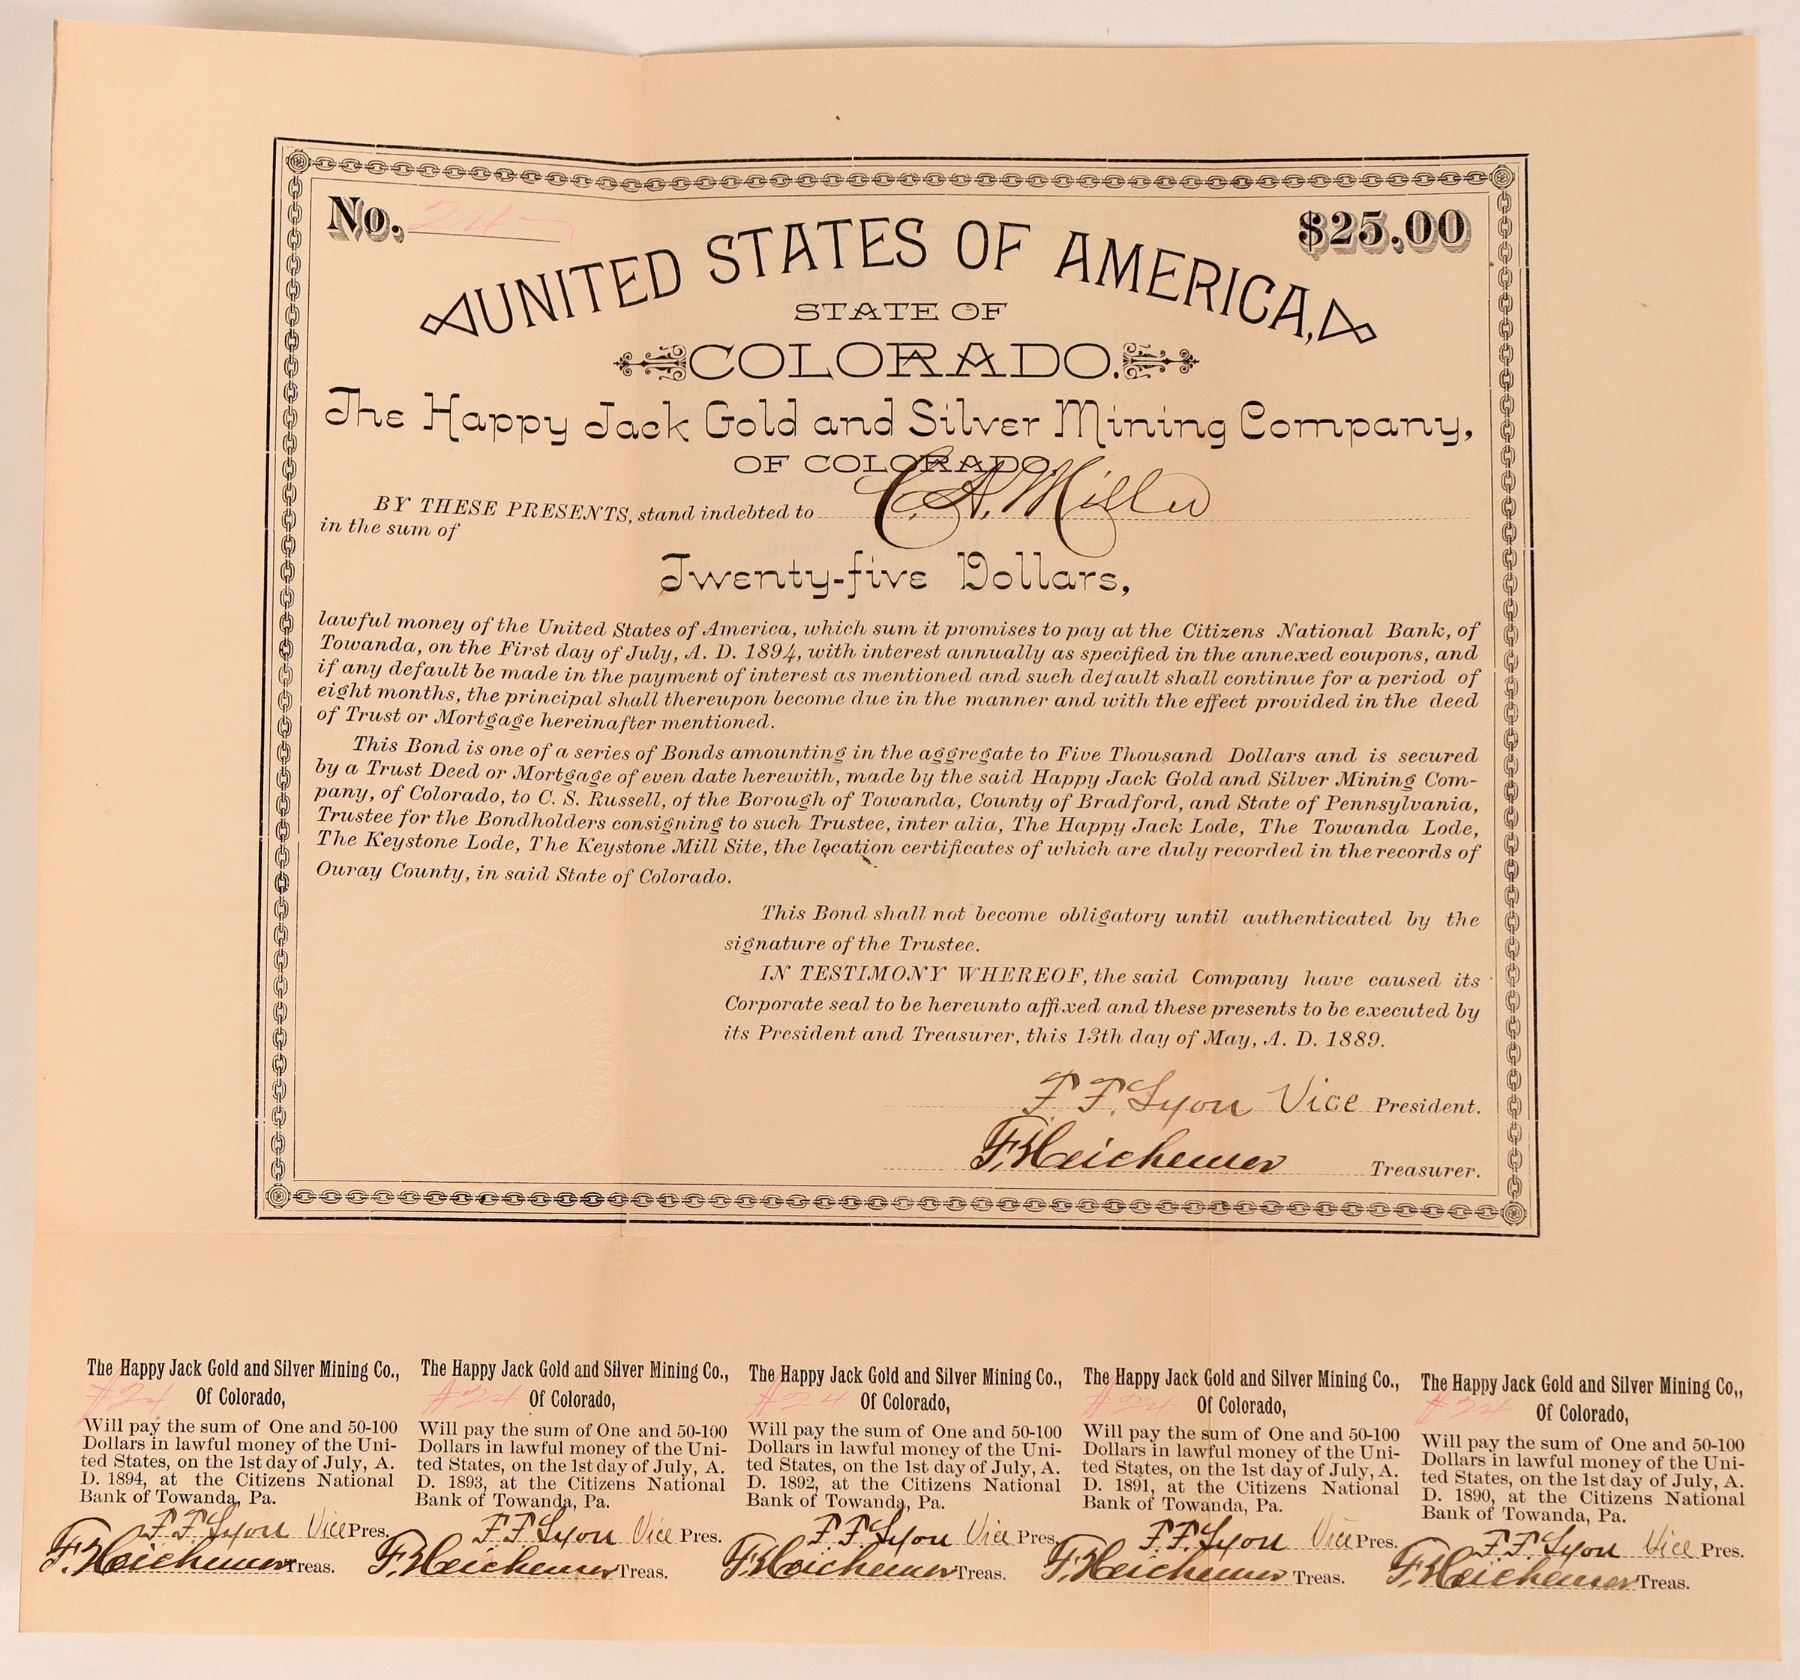 No. 24
$25.00
UNITED STATES OF AMERICA,
STATE OF
COLORADO.
The Happy Jack Gold and Silver Mining Company,
OF COLORADO
BY THESE PRESENTS, stand indebted to C. A. Miller
in the sum of
Twenty-five Dollars,
lawful money of the United States of America, which sum it promises to pay at the Citizens National Bank, of
Towanda, on the First day of July, A. D. 1894, with interest annually as specified in the annexed coupons, and
if any default be made in the payment of interest as mentioned and such default shall continue for a period of
eight months, the principal shall thereupon become due in the manner and with the effect provided in the deed
of Trust or Mortgage hereinafter mentioned.
This Bond is one of a series of Bonds amounting in the aggregate to Five Thousand Dollars and is secured
by a Trust Deed or Mortgage of even date herewith, made by the said Happy Jack Gold and Silver Mining Com-
pany, of Colorado, to C. S. Russell, of the Borough of Towanda, County of Bradford, and State of Pennsylvania,
Trustee for the Bondholders consigning to such Trustee, inter alia, The Happy Jack Lode, The Towanda Lode,
The Keystone Lode, The Keystone Mill Site, the location certificates of which are duly recorded in the records of
Ouray County, in said State of Colorado.
This Bond shall not become obligatory until authenticated by the
signature of the Trustee.
IN TESTIMONY WHEREOF, the said Company have caused its
Corporate seal to be hereunto affixed and these presents to be executed by
its President and Treasurer, this 13th day of May, A. D. 1889.
F. F. Lyon Vice President.
Treasurer.
The Happy Jack Gold and Silver Mining Co.,
#24 Of Colorado,
Will pay the sum of One and 50-100
Dollars in lawful money of the Uni-
ted States, on the 1st day of July, A.
D. 1894, at the Citizens National
Bank of Towanda, Pa.
F. F. Lyon Vice Pres.
Treas.
The Happy Jack Gold and Silver Mining Co.,
#24 Of Colorado,
Will pay the sum of One and 50-100
Dollars in lawful money of the Uni-
ted States, on the 1st day of July, A.
D. 1893, at the Citizens National
Bank of Towanda, Pa.
F. F. Lyon Vice Pres.
Treas.
The Happy Jack Gold and Silver Mining Co.,
#24 Of Colorado,
Will pay the sum of One and 50-100
Dollars in lawful money of the Uni-
ted States, on the 1st day of July, A.
D. 1892, at the Citizens National
Bank of Towanda, Pa.
F. F. Lyon Vice Pres.
Treas.
The Happy Jack Gold and Silver Mining Co.,
#24 Of Colorado,
Will pay the sum of One and 50-100
Dollars in lawful money of the Uni-
ted States, on the 1st day of July, A.
D. 1891, at the Citizens National
Bank of Towanda, Pa.
F. F. Lyon Vice Pres.
Treas.
The Happy Jack Gold and Silver Mining Co.,
#24 Of Colorado,
Will pay the sum of One and 50-100
Dollars in lawful money of the Uni-
ted States, on the 1st day of July, A.
D. 1890, at the Citizens National
Bank of Towanda, Pa.
F. F. Lyon Vice Pres.
Treas.